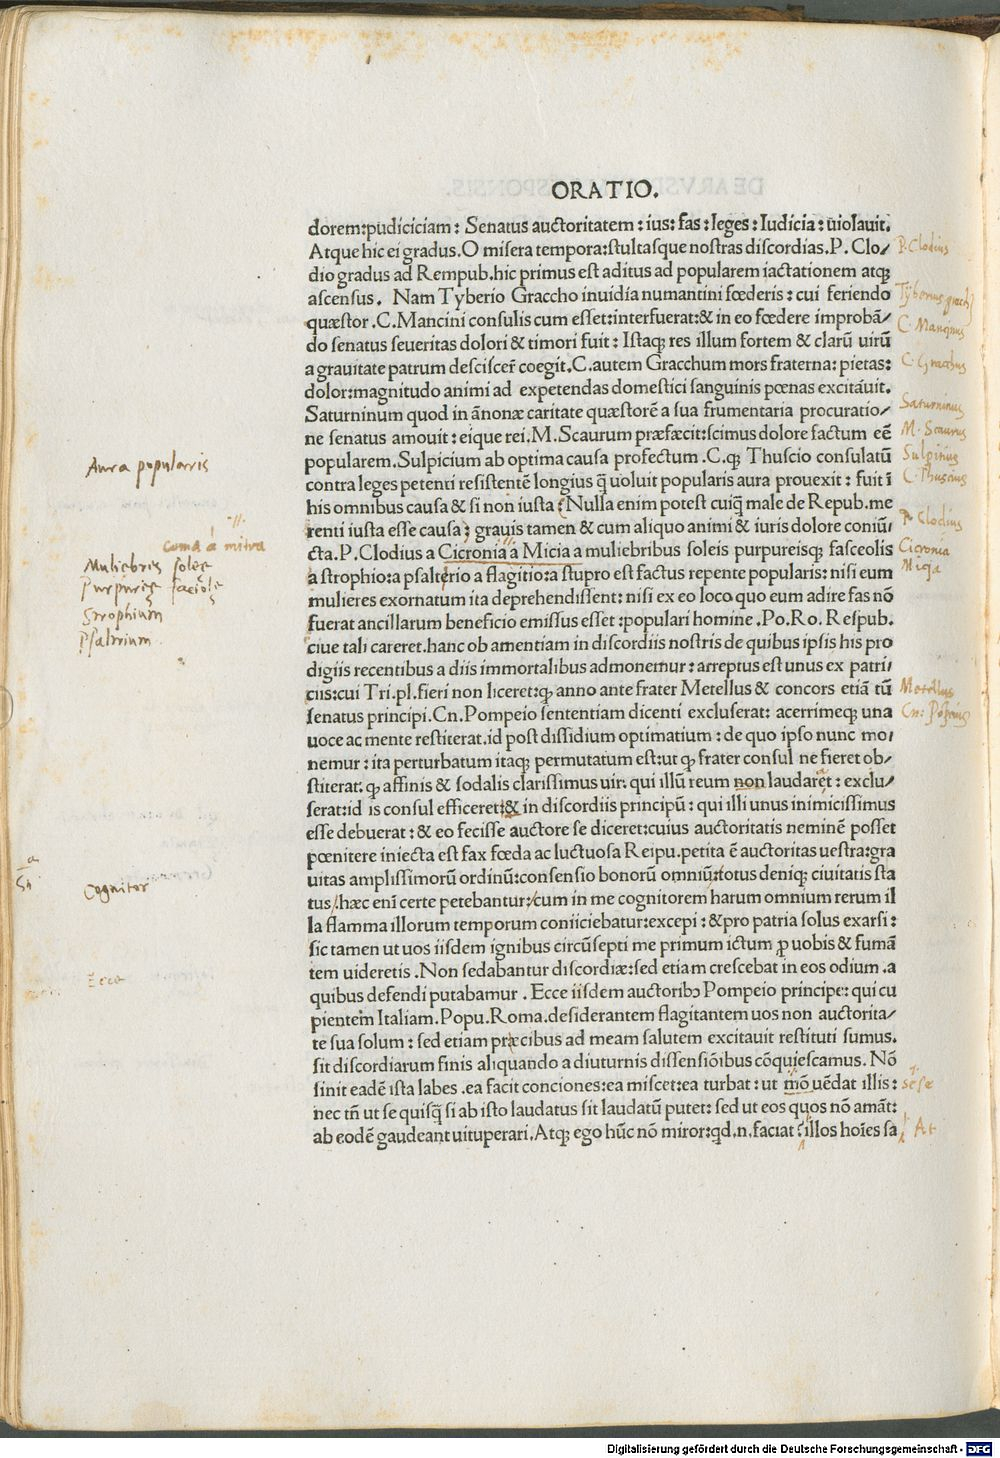 ORATIO.
dorem:pudiciciam: Senatus auctoritatem: ius: fas: leges: Iudicia: uiolauit.
Atque hic ei gradus. O misera tempora: stultasque nostras discordias. P. Clo/
dio gradus ad Rempub. hic primus est aditus ad popularem iactationem atqꝫ
ascensus. Nam Tyberio Graccho inuidia numantini fœderis: cui feriendo
quæstor .C. Mancini consulis cum esset: interfuerat: & in eo fœdere improbā/
do senatus seueritas dolori & timori fuit: Istaqꝫ res illum fortem & clarū uirū
a grauitate patrum desciscer̃ coegit. C. autem Gracchum mors fraterna: pietas:
dolor: magnitudo animi ad expetendas domestici sanguinis pœnas excitauit.
Saturninum quod in ānonæ caritate quæstorē a sua frumentaria procuratio/
ne senatus amouit: eique rei. M. Scaurum præfæcit: scimus dolore factum eē
popularem. Sulpicium ab optima causa profectum .C. qꝫ Thuscio consulatū
contra leges petenti resistentē longius q̃ uoluit popularis aura prouexit: fuit ī
his omnibus causa & si non iusta: Nulla enim potest cuiqꝫ male de Repub. me
renti iusta esse causa; grauis tamen & cum aliquo animi & iuris dolore coniū/
cta. P. Clodius a Cicronia a Micia a muliebribus soleis purpureisqꝫ fasceolis
a strophio: a psalterio a flagitio: a stupro est factus repente popularis: nisi eum
mulieres exornatum ita deprehendissent: nisi ex eo loco quo eum adire fas nō
fuerat ancillarum beneficio emissus esset: populari homine. Po. Ro. Respub.
ciue tali careret. hanc ob amentiam in discordiis nostris de quibus ipsis his pro
digiis recentibus a diis immortalibus admonemur: arreptus est unus ex patri/
ciis: cui Tri. pl. fieri non liceret: qꝫ anno ante frater Metellus & concors etiā tū
senatus principi. Cn. Pompeio sententiam dicenti excluserat: acerrimeqꝫ una
uoce ac mente restiterat. id post dissidium optimatium: de quo ipso nunc mo/
nemur: ita perturbatum itaqꝫ permutatum est: ut qꝫ frater consul ne fieret ob/
stiterat. qꝫ affinis & sodalis clarissimus uir. qui illū reum non laudaret: exclu/
serat: id is consul efficeret: & in discordiis principū: qui illi unus inimicissimus
esse debuerat: & eo fecisse auctore se diceret: cuius auctoritatis neminē posset
pœnitere iniecta est fax fœda ac luctuosa Reipu. petita ē auctoritas uestra: gra
uitas amplissimorū ordinū: consensio bonorū omniū: totus deniqꝫ ciuitatis sta
tus. hæc enī certe petebantur: cum in me cognitorem harum omnium rerum il
la flamma illorum temporum coniiciebatur: excepi: & pro patria solus exarsi:
sic tamen ut uos iisdem ignibus circūsepti me primum ictum ꝓ uobis & fumā
tem uideretis. Non sedabantur discordiæ: sed etiam crescebat in eos odium .a
quibus defendi putabamur. Ecce iisdem auctoribꝯ Pompeio principe: qui cu
pientem Italiam. Popu. Roma. desiderantem flagitantem uos non auctorita/
te sua solum: sed etiam præcibus ad meam salutem excitauit restituti sumus.
sit discordiarum finis aliquando a diuturnis dissensiōibus cōquiescamus. Nō
sinit eadē ista labes .ea facit conciones: ea miscet: ea turbat: ut mō uēdat illis:
nec tñ ut se quisq̃ si ab isto laudatus sit laudatū putet: sed ut eos quos nō amāt:
ab eodē gaudeant uituperari. Atqꝫ ego hūc nō miror: qd .n. faciat? illos hoīes sa
Aura popularis
coma á mitra
Muliebris soleę
Purpureę facíolę
Strophium
Psaltrium
Cognitor
Ecce
P. Clodius
Tyberius gracch
C. Mancinus
C. Gracchus
Saturninus
M. Scaurus
Sulpitius
C. Thuscius
P. Clodius
Cicronia
Metellus
Cn: Pōpeius
sese
At
Digitalisierung gefördert durch die Deutsche Forschungsgemeinschaft - DFG